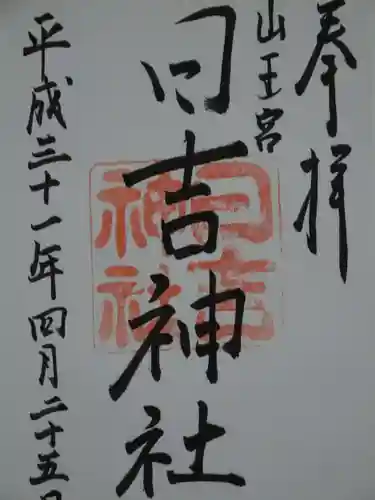 奉拝
山王宮
日吉神社
日吉神社
平成三十一年四月二十五日